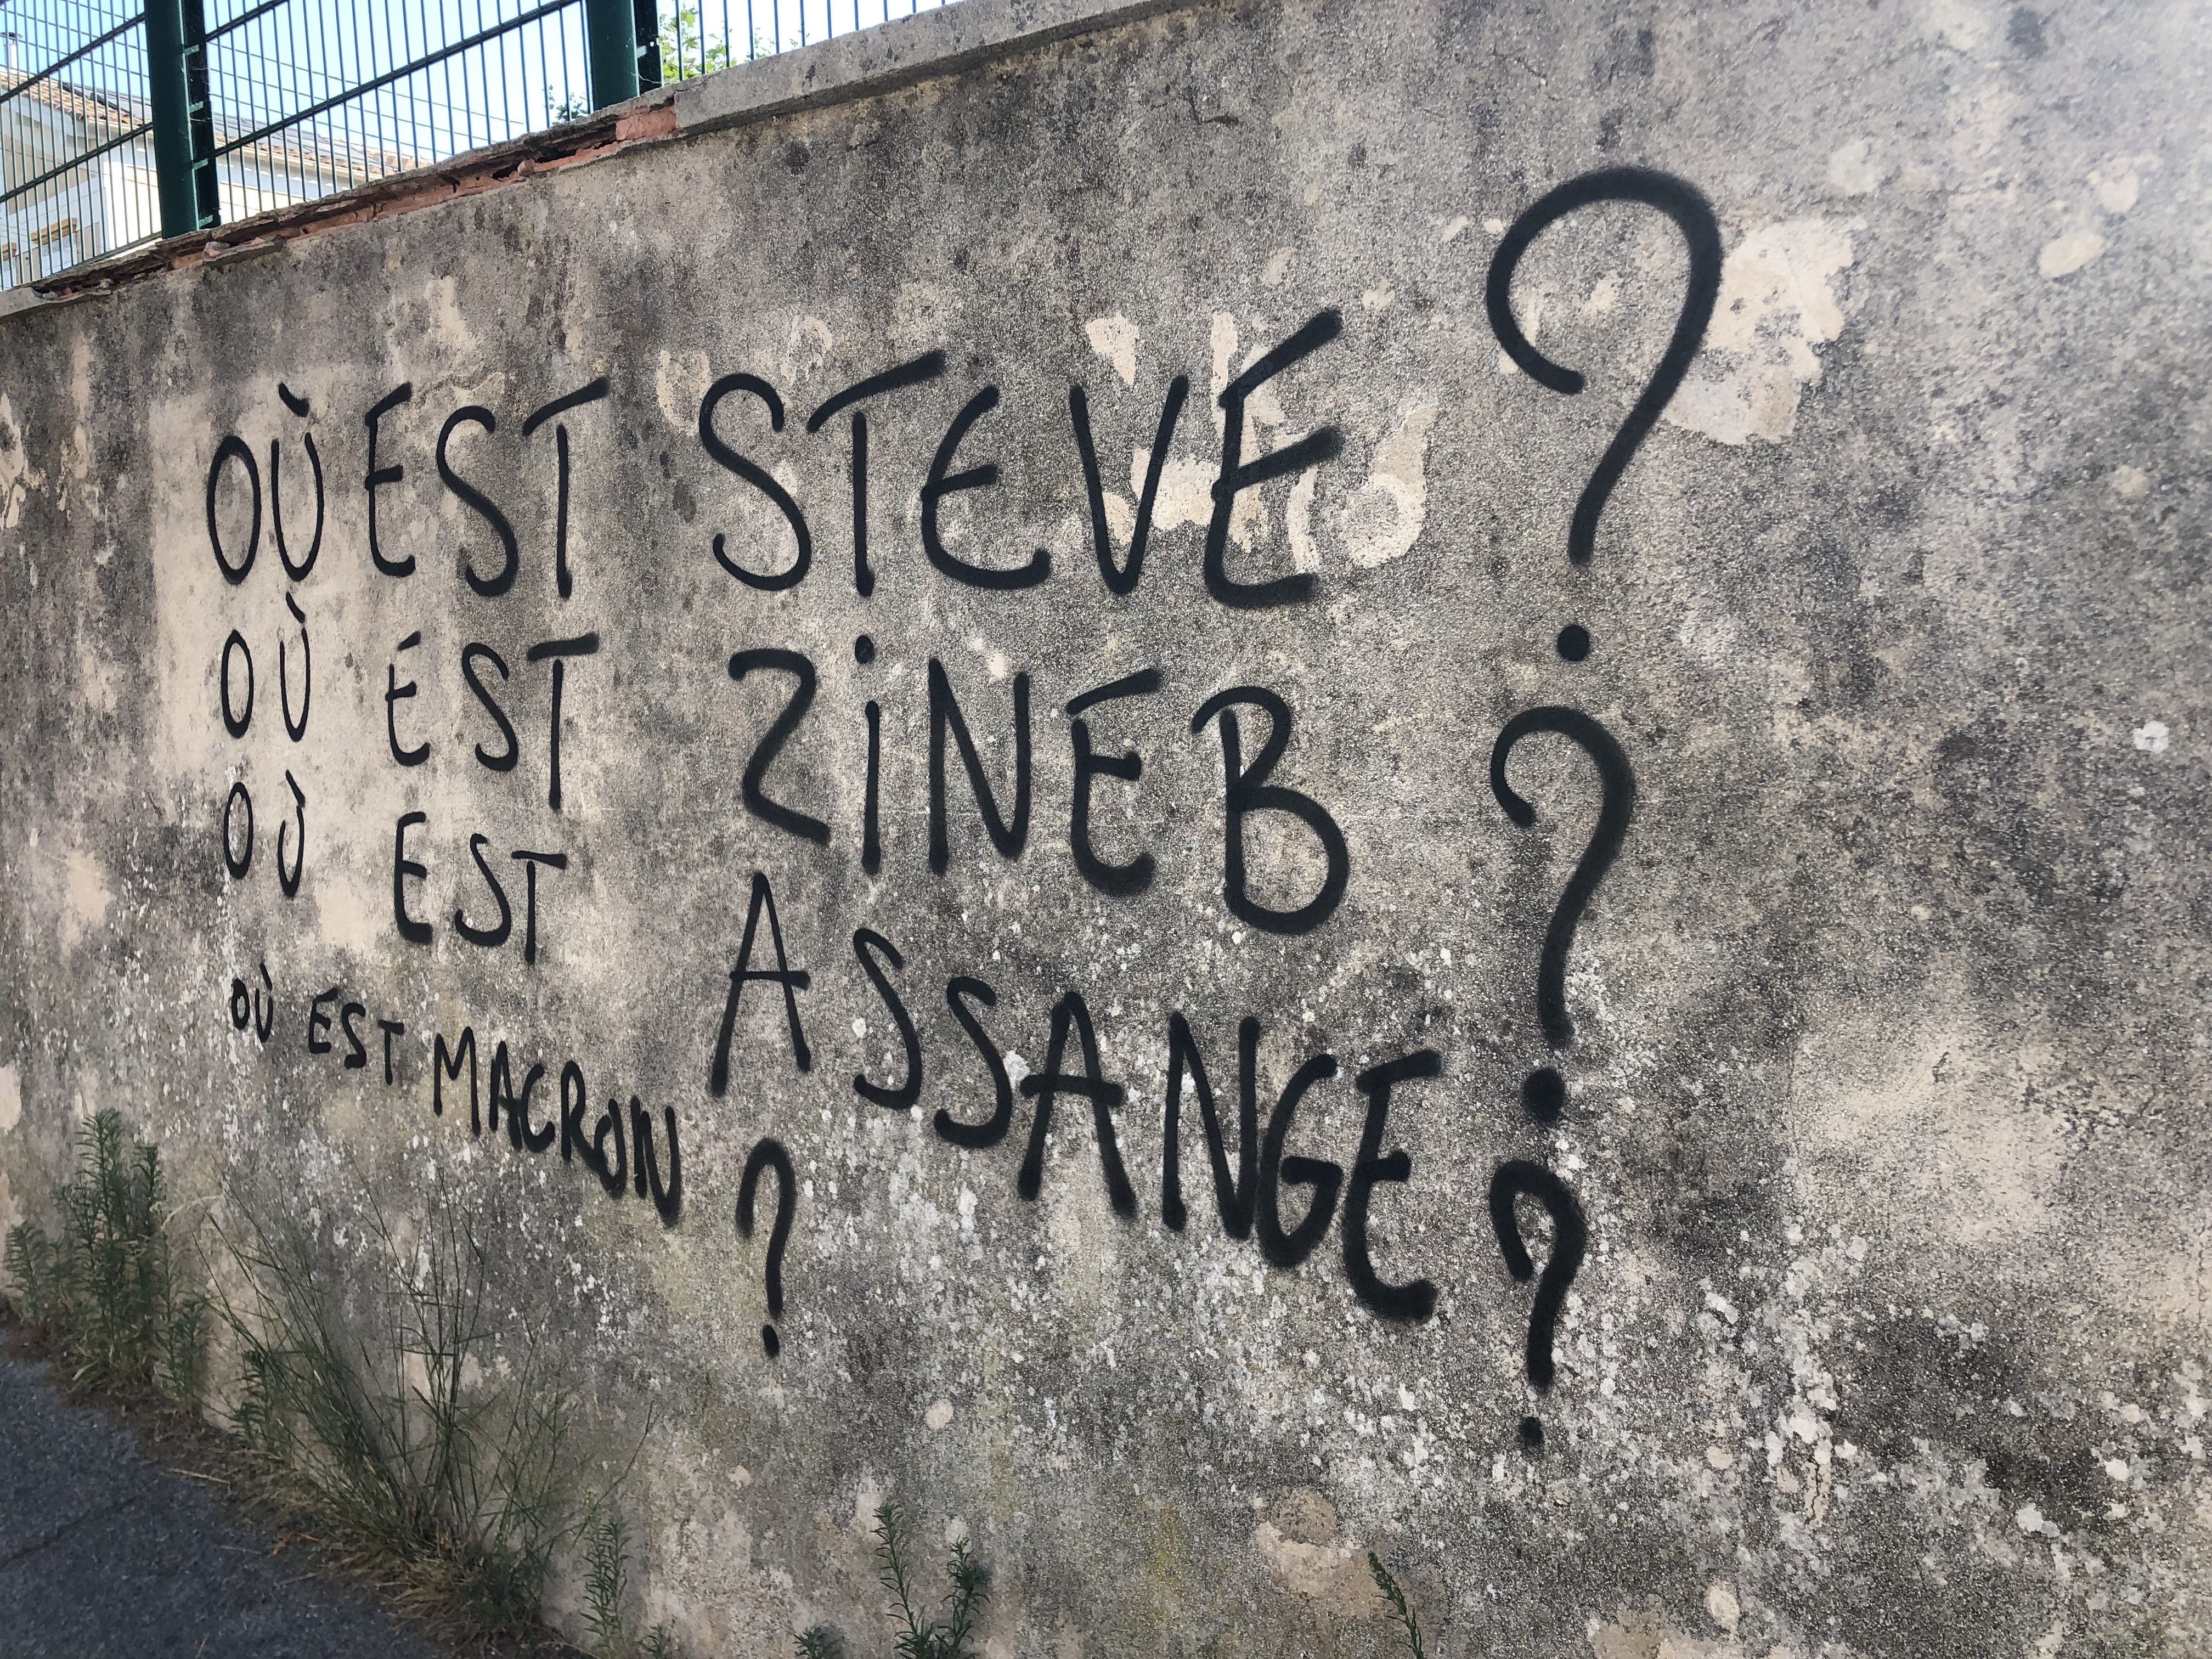 OÙ EST STEVE ?
OÙ EST ZiNEB ?
OÙ EST ASSANGE ?
OÙ EST MACRON ?